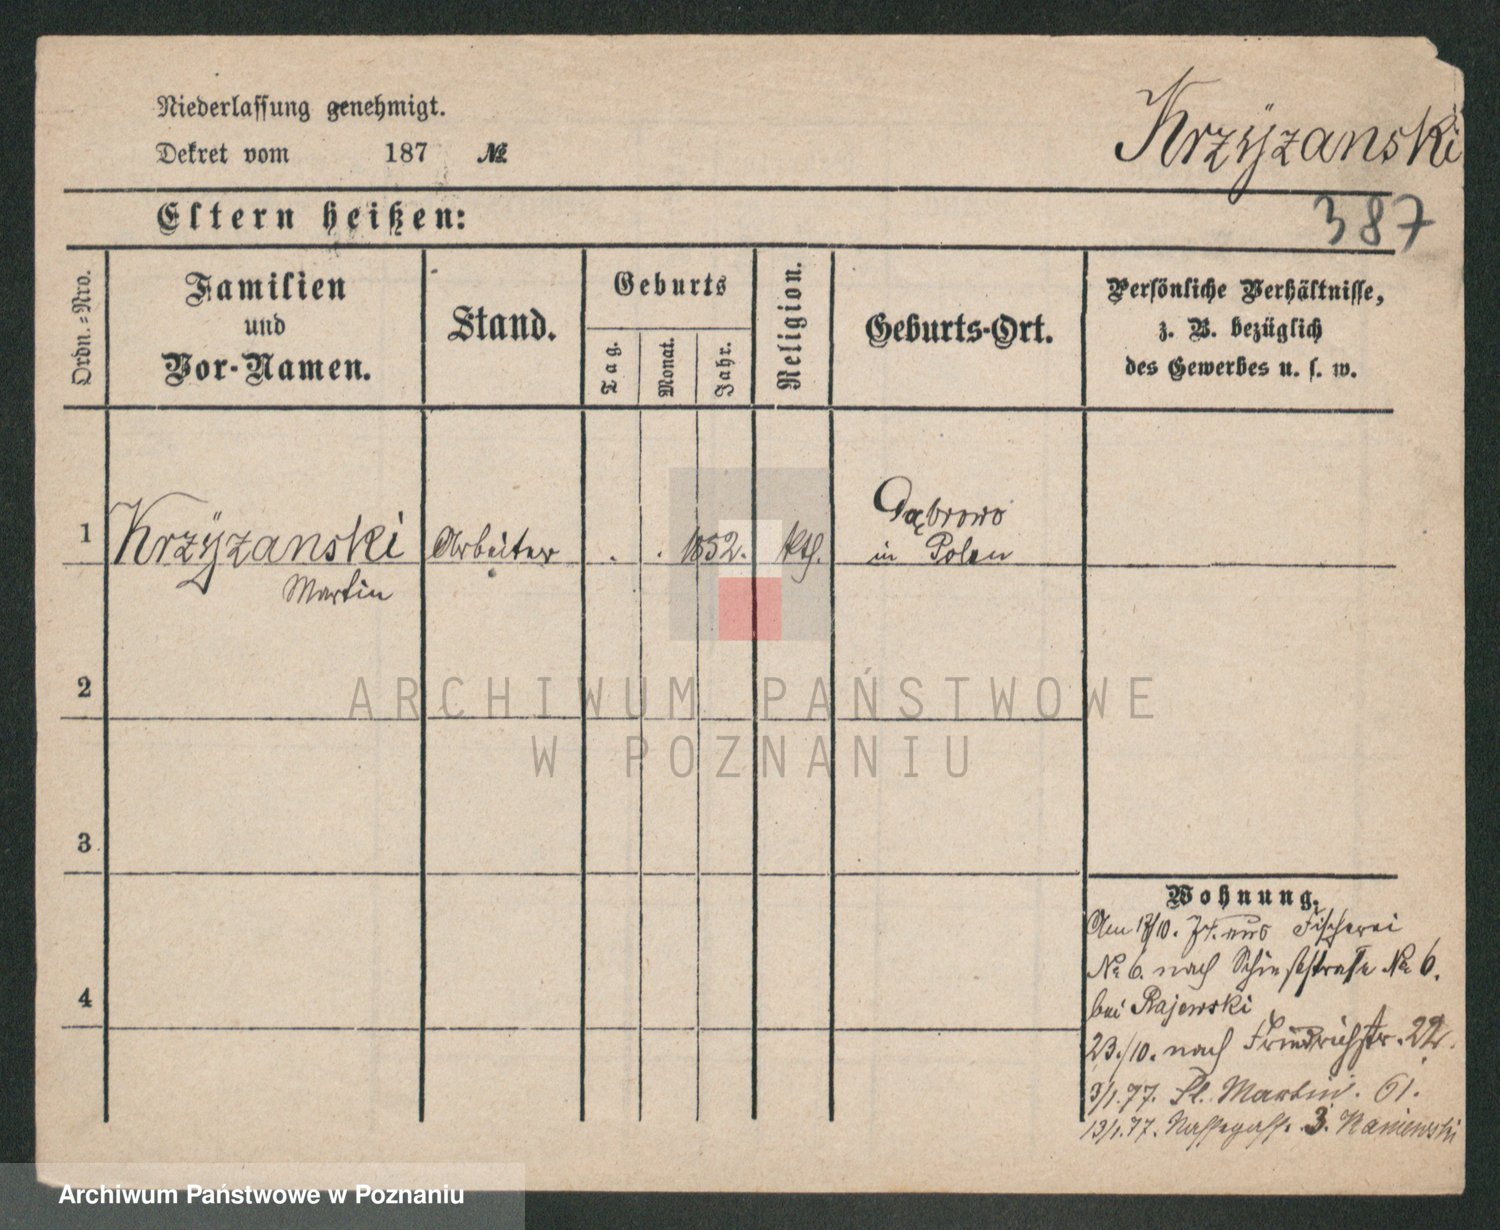 Niederlassung genehmigt.
Krzyzanski
Dekret vom 187 №
Eltern heißen:
387
Ordn.=Nro.
Familien
und
Vor-Namen.
Stand.
Geburts
Tag.
Monat.
Jahr.
Religion.
Geburts-Ort.
Persönliche Verhältnisse,
z. B. bezüglich
des Gewerbes u. s. w.
1 Krzyzanski Arbeiter . . 1852. kth. Dąbrowo
Martin in Polen
2
3
4
Wohnung.
Am 17/10. aus Fischerei
No 6. nach Schießstraße No 6.
bei Rajewski
23./10. nach Friedrichstr. 22.
3/1.77. St. Martin. 61.
13/1.77. Nassegasse 3. Kaniewski
ARCHIWUM PAŃSTWOWE
W POZNANIU
Archiwum Państwowe w Poznaniu